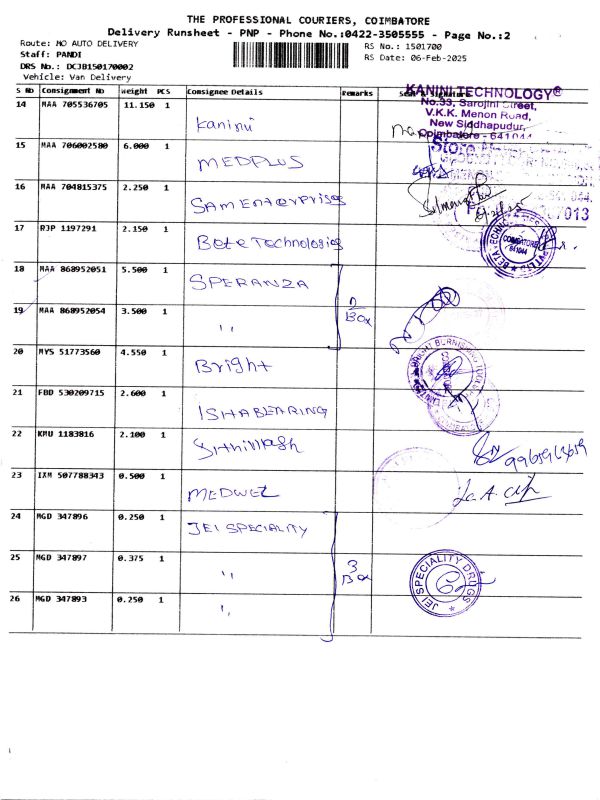 THE PROFESSIONAL COURIERS, COIMBATORE
Delivery Runsheet - PNP - Phone No.:0422-3505555 - Page No.:2
Route: MO AUTO DELIVERY
RS No.: 1501700
Staff: PANDI
RS Date: 06-Feb-2025
DRS No.: DCJB150170002
Vehicle: Van Delivery
S No Consignment No Weight PCS Consignee Details Remarks
KANINI TECHNOLOGY®
No.33, Sarojini Street,
V.K.K. Menon Road,
New Siddhapudur,
Coimbatore - 641044
14 MAA 705536705 11.150 1 Kanini
15 MAA 706002580 6.000 1 MEDPLUS
16 MAA 704815375 2.250 1 SAM Enterprises
17 RJP 1197291 2.150 1 Beta Technologies
COIMBATORE
641044
18 MAA 868952051 5.500 1 SPERANZA
2 Box
19 MAA 868952054 3.500 1 ''
20 MYS 51773560 4.550 1 Bright
21 FBD 530209715 2.600 1 ISHABEARING
22 KMU 1183816 2.100 1
9965963659
23 IXM 507788343 0.500 1 MEDWEL
24 MGD 347896 0.250 1 JEI SPECIALITY
25 MGD 347897 0.375 1 ''
3 Box
JEI SPECIALITY DRUGS
26 MGD 347893 0.250 1 ''